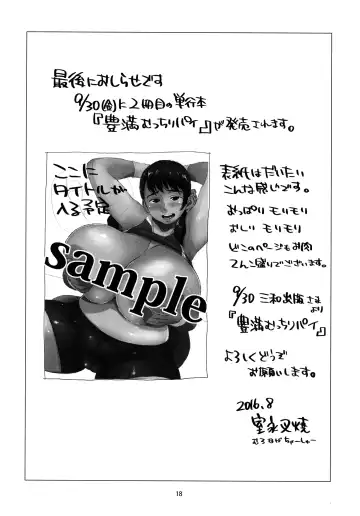 最後におしらせです
9/30(金)に2冊目の単行本
『豊満むっちりパイ』が発売されます。
ここに
タイトルが
入る予定
sample
表紙はだいたい
こんな感じです。
おっぱいモリモリ
おしりモリモリ
どこのページもお肉
てんこ盛りでございます。
9/30 三和出版さま
より
『豊満むっちりパイ』
よろしくどうぞ
お願いします。
2016.8
室永叉焼
むろながちゃーしゅー
18